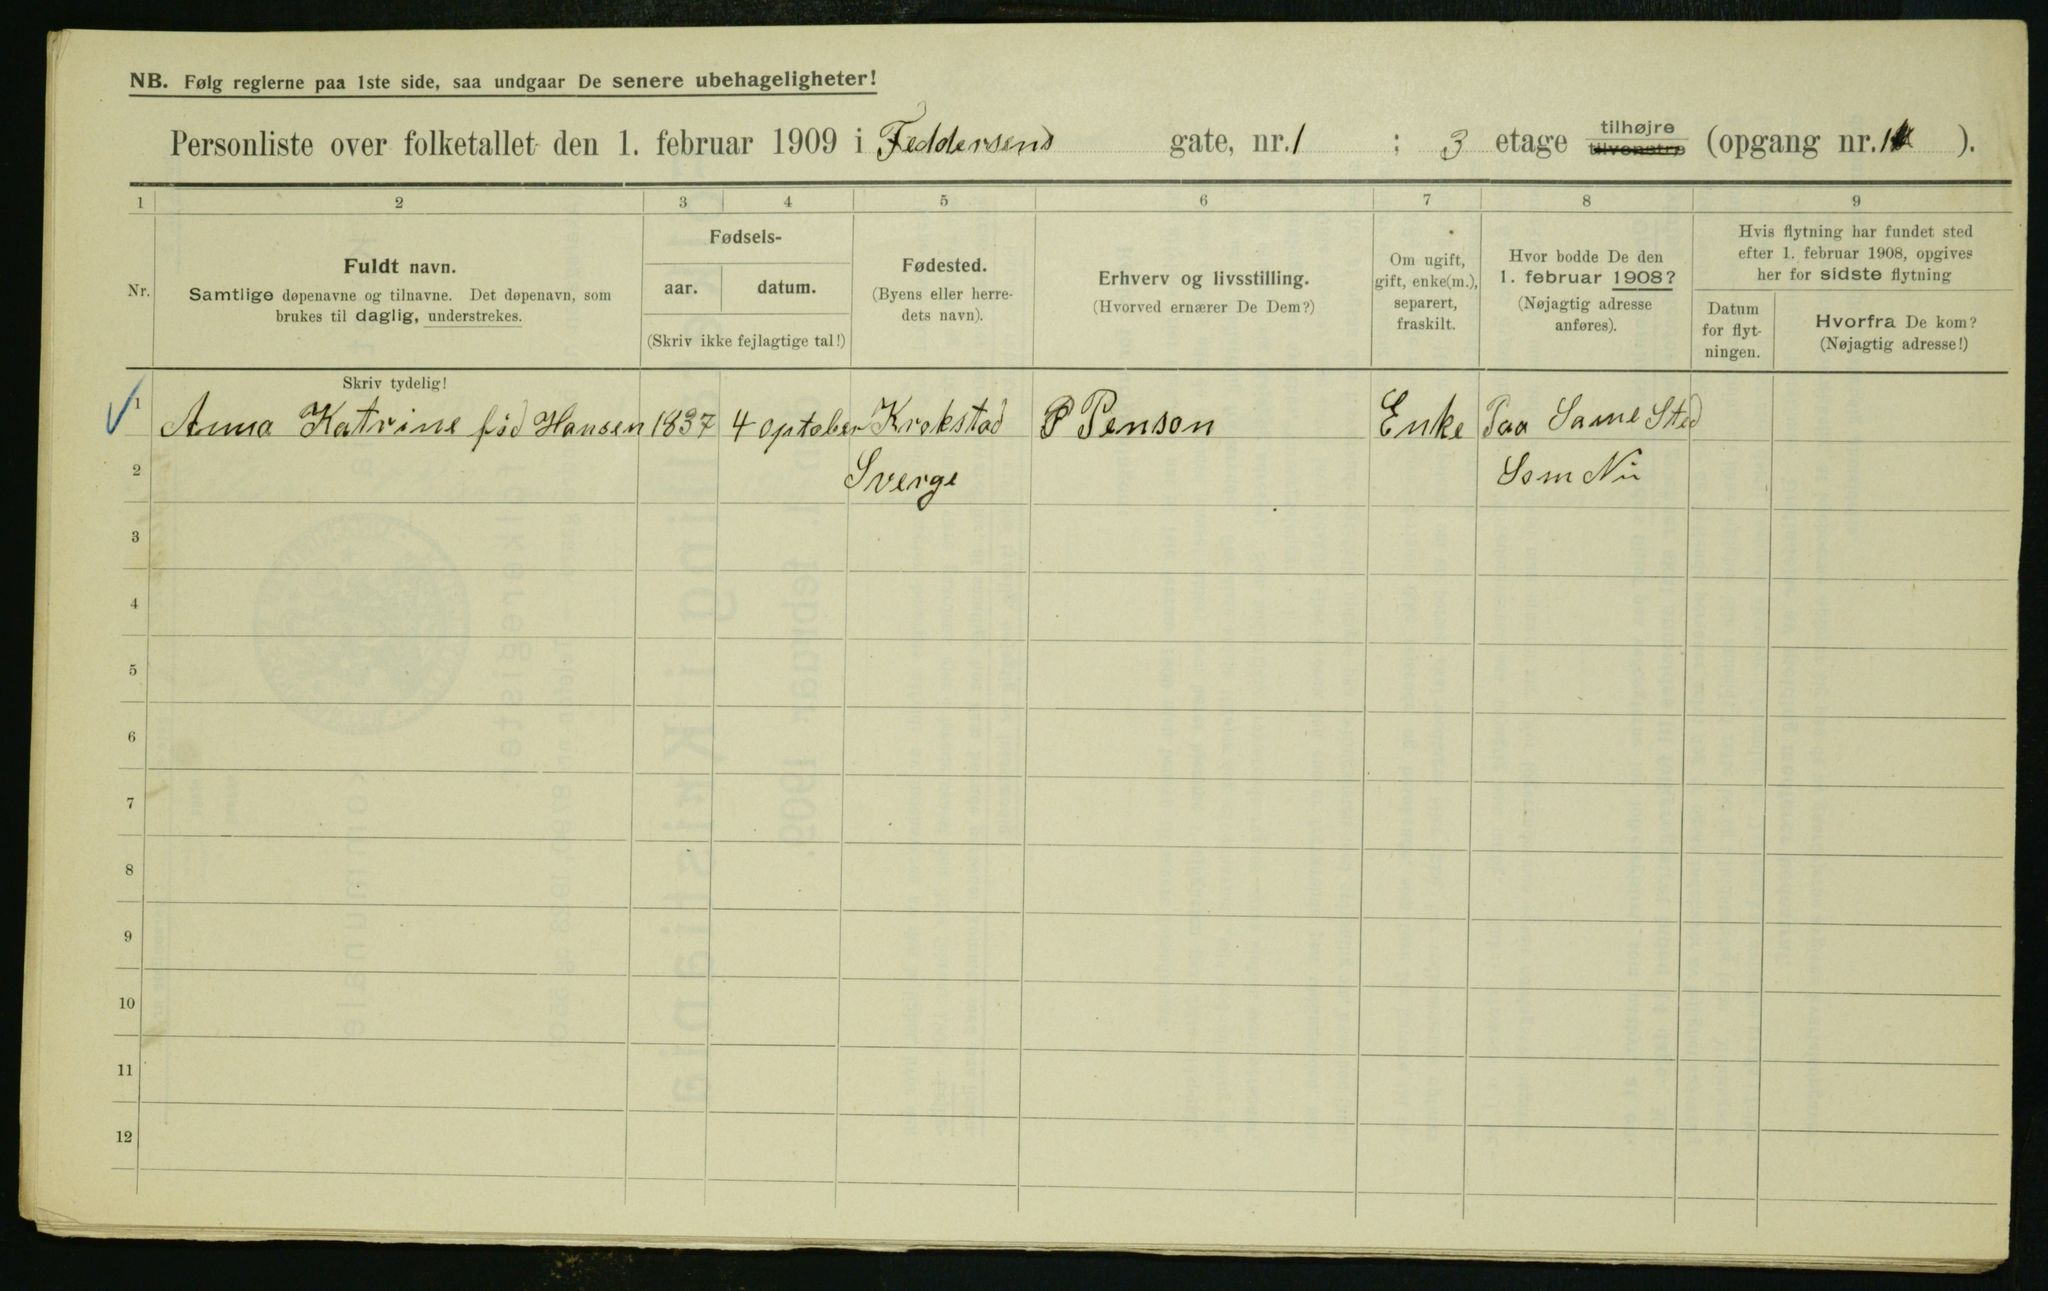 NB. Følg reglerne paa 1ste side, saa undgaar De senere ubehageligheter!
Personliste over folketallet den 1. februar 1909 i Feddersens gate, nr. 1 ; 3 etage tilhøjre tilvenstre (opgang nr. 1 ).
1 2 3 4 5 6 7 8 9
Nr.
Fuldt navn.
Samtlige døpenavne og tilnavne. Det døpenavn, som
brukes til daglig, understrekes.
Fødsels-
aar. datum.
(Skriv ikke fejlagtige tal!)
Fødested.
(Byens eller herre-
dets navn).
Erhverv og livsstilling.
(Hvorved ernærer De Dem?)
Om ugift,
gift, enke(m.),
separert,
fraskilt.
Hvor bodde De den
1. februar 1908?
(Nøjagtig adresse
anføres).
Hvis flytning har fundet sted
efter 1. februar 1908, opgives
her for sidste flytning
Datum
for flyt-
ningen.
Hvorfra De kom?
(Nøjagtig adresse!)
Skriv tydelig!
1 Anna Katrine fød Hansen 1837 4 optober Krokstad P Penson Enke Paa Same Sted
2 Sverge Som Nu
3
4
5
6
7
8
9
10
11
12